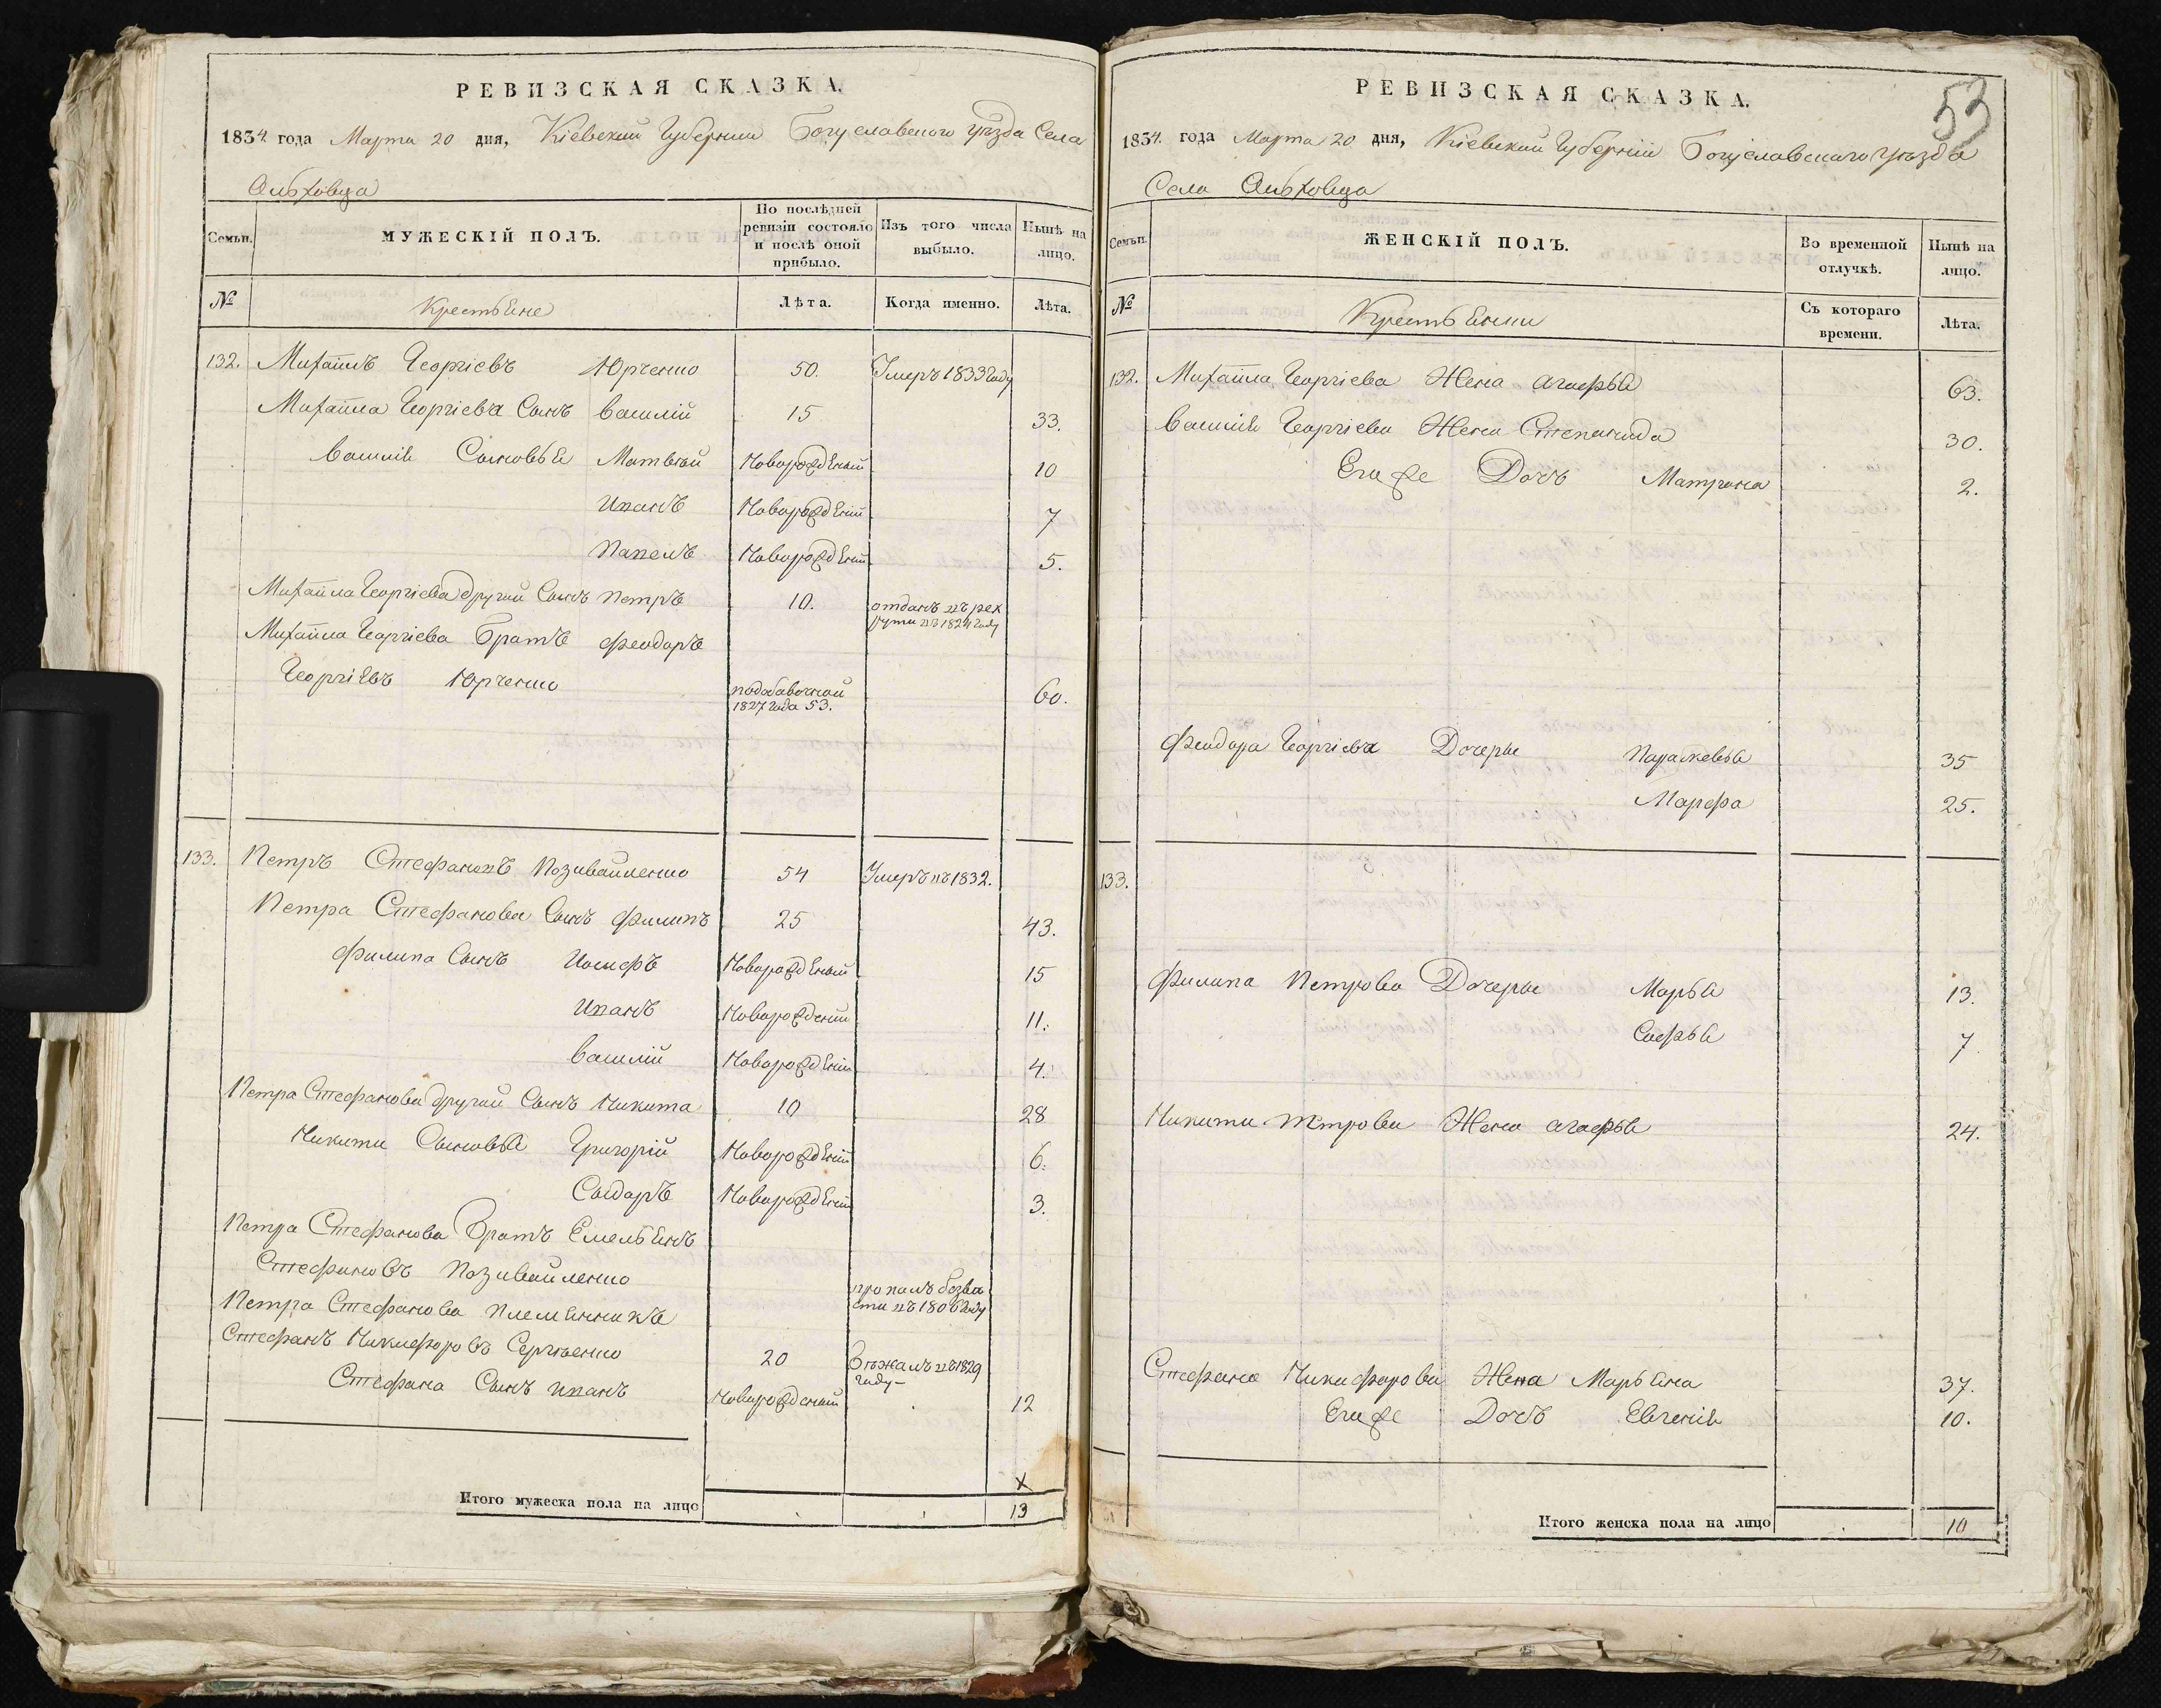 РЕВИЗСКАЯ СКАЗКА.
1834 года Марта 20 дня, Кіевский Губернии Богуславского уѣзда Села
Ольховца
Семьи.
МУЖЕСКІЙ ПОЛЪ.
По послѣдней ревизіи состояло и послѣ оной прибыло.
Изъ того числа выбыло.
Нынѣ на лицо.
№
Крестьяне
Лѣта.
Когда именно.
Лѣта.
132. Михаилъ Георгіевъ Юрченко 50. Умеръ 1833 году
Михаила Георгіева Сынъ Василій 15 33.
Василія Сыновья Матвѣй Новорожденый 10
Иванъ Новорожденій 7
Павелъ Новорожденій 5.
Михаила Георгіева другий Сынъ Петръ 10. отданъ въ рек
руты въ 1824 году
Михаила Георгіева Братъ Феодоръ
Георгіевъ Юрченко подобавочной 60.
1827 года 53.
133. Петръ Стефановъ Позивайленко 54 Умеръ въ 1832.
Петра Стефанова Сынъ Филипъ 25 43.
Филипа Сынъ Иосифъ Новорожденый 15
Иванъ Новорожденій 11.
Василій Новорожденій 4.
Петра Стефанова другий Сынъ Никита 10 28
Никити Сыновья Григорій Новорожденій 6.
Сыдоръ Новорожденій 3.
Петра Стефанова Братъ Емельянъ
Стефановъ Позивайленко пропалъ безвѣ
сти въ 1806 году
Петра Стефанова племянникъ
Стефанъ Никифоровъ Сергѣенко 20 Бѣжалъ въ 1829
году
Стефана Сынъ Иванъ Новорожденый 12
х
Итого мужеска пола на лицо 13
53
РЕВИЗСКАЯ СКАЗКА.
1834. года Марта 20 дня, Кіевский Губерніи Богуславскаго уѣзда
Села Ольховца
Семьи.
ЖЕНСКІЙ ПОЛЪ.
Во временной отлучкѣ.
Нынѣ на лицо.
№
Крестьянки
Съ котораго времени.
Лѣта.
132. Михаила Георгіева Жена Агафья 63.
Василія Георгіева Жена Степанида 30.
Егоже Дочь Матрона 2.
Феодора Георгіева Дочеры Параскевья 35
Марфа 25.
133.
Филипа Петрова Дочеры Марья 13.
Софья 7.
Никити Петрова Жена Агафья 24.
Стефана Никифорова Жена Марьяна 37.
Егоже Дочь Евгенія 10.
Итого женска пола на лицо 10